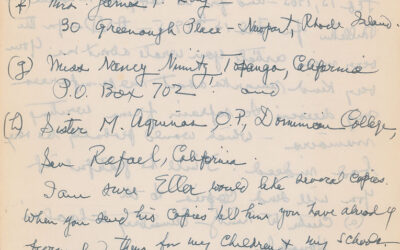 (f) Mrs. James
30 Greenough Place - Newport, Rhode Island.
(g) Miss Nancy California
P.O. Box 702 and
(h) Sister M. Aquinas, O.P., Dominican College,
San Rafael, California.
I am sure Eller would like several copies.
When you send his copies tell him you have already
them for my children & my schools.